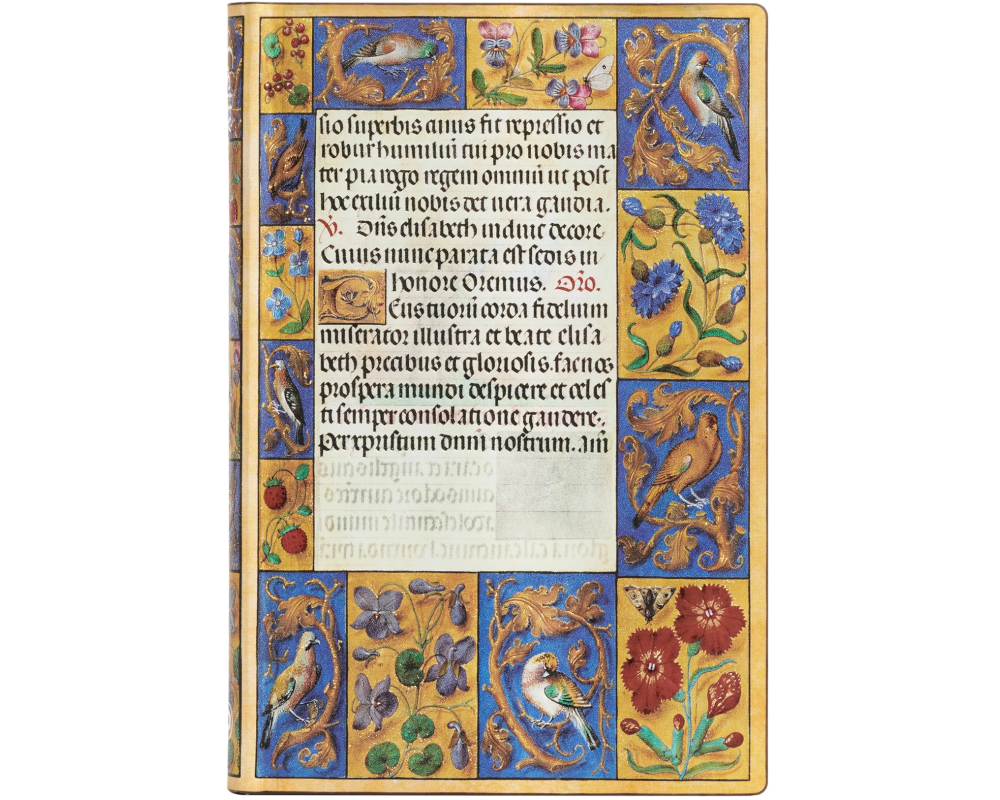 sio superbis cuius fit repressio et
robur humiliũ tui pro nobis ma
ter pia rogo regem omniũ ut post
hoc exiliũ nobis det uera gaudia.
℣. Dñs elisabeth induit decore
Cuius nunc parata est sedis in
honore Oremus. Orõ.
Eus tuorũ corda fidelium
miserator illustra et beate elisa
beth precibus et gloriosis. fac nos
prospera mundi despicere et celes
ti semper consolatione gaudere.
Per xpristum dnm̃ nostrum. am̃